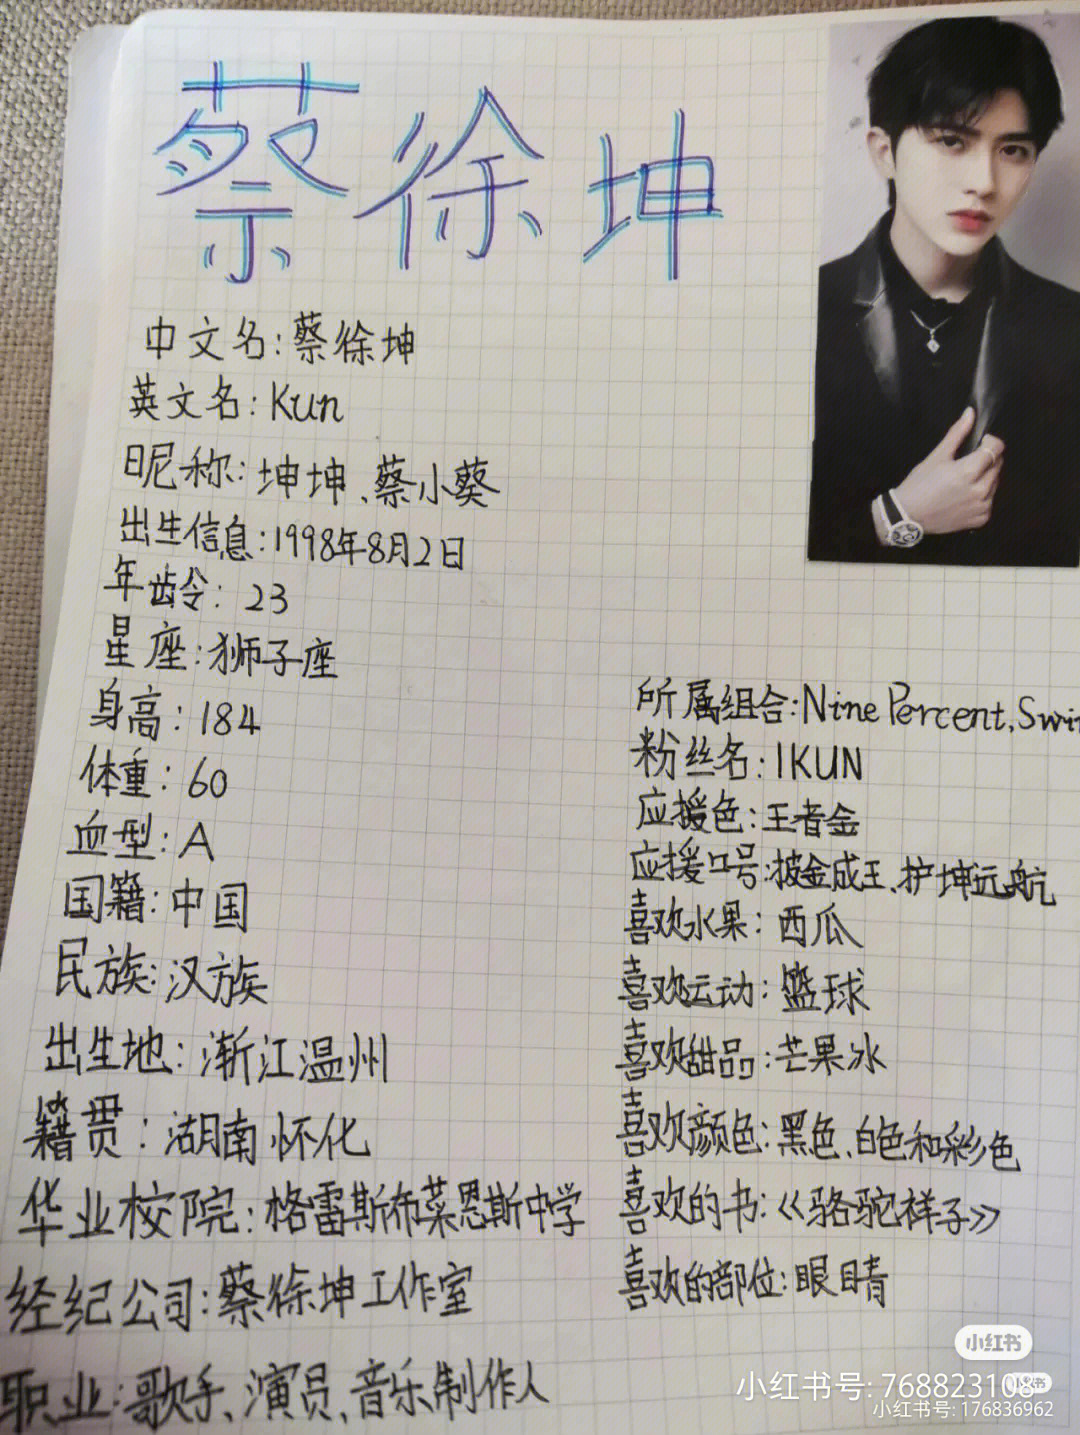 蔡徐坤
中文名:蔡徐坤
英文名:Kun
昵称:坤坤、蔡小葵
出生信息:1998年8月2日
年龄:23
星座:狮子座
身高:184
体重:60
血型:A
国籍:中国
民族:汉族
出生地:浙江温州
籍贯:湖南怀化
毕业校院:格雷斯布莱恩斯中学
经纪公司:蔡徐坤工作室
职业:歌手、演员、音乐制作人
所属组合:Nine Percent、Swi
粉丝名:IKUN
应援色:王者金
应援口号:披金成王、护坤远航
喜欢水果:西瓜
喜欢运动:篮球
喜欢甜品:芒果冰
喜欢颜色:黑色、白色和彩色
喜欢的书:《骆驼祥子》
喜欢的部位:眼睛
小红书
小红书号: 768823108
小红书
小红书号: 176836962